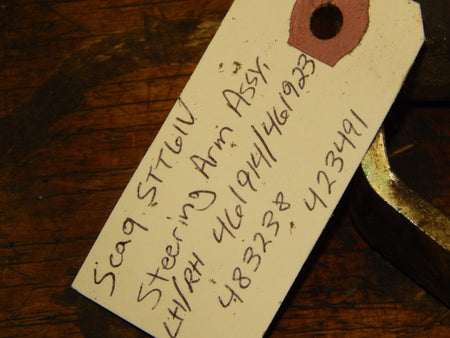 Scag STT61V
Steering Arm Assy.
LH/RH 461914/461923
483238 423491